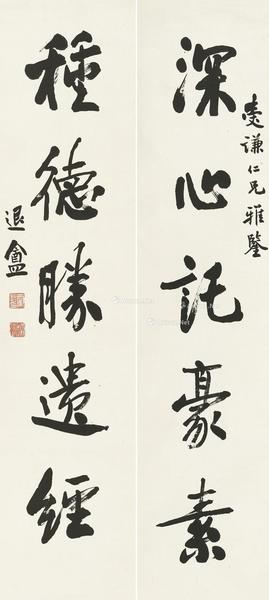 夌谦仁兄雅鑒
深心託豪素
種德勝遺經
退盦